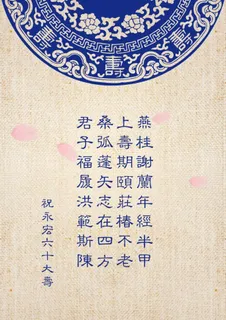 燕桂謝蘭年經半甲
上壽期頤莊椿不老
桑弧蓬矢志在四方
君子福履洪範斯陳
祝永宏六十大壽
壽
壽
壽